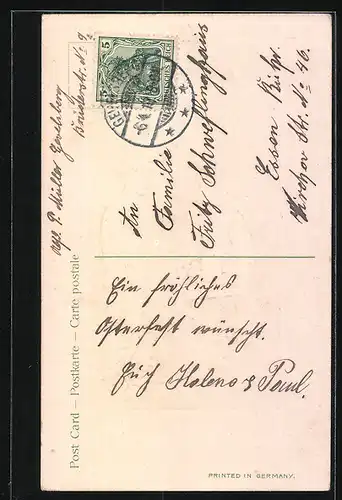 Abs. P. Müller Gevelsberg
Brüderstr. No 9
5
DEUTSCHES REICH
An
Familie
Fritz Schweflinghaus
Essen Ruhr.
Str. No 46.
Post Card – Postkarte – Carte postale
Ein fröhliches
Osterfest wünscht.
Euch Helene & Paul.
PRINTED IN GERMANY.